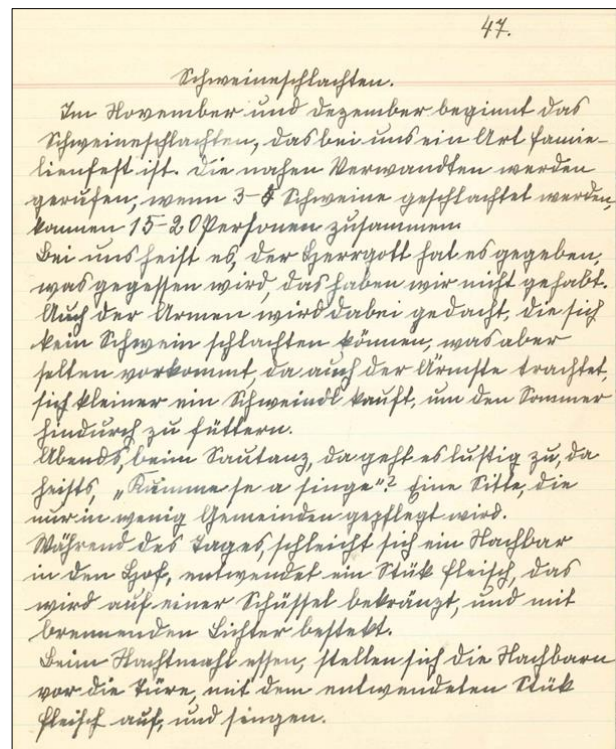 47.
Schweineschlachten.
Im November und Dezember beginnt das
Schweineschlachten, das bei uns ein Art Famie-
lienfest ist. Die nahen Verwandten werden
gerufen, wenn 3-4 Schweine geschlachtet werden,
kommen 15-20 Personen zusammen.
Bei uns heist es, der Herrgott hat es gegeben,
was gegessen wird, das haben wir nicht gehabt.
Auch der Armen wird dabei gedacht, die sich
kein Schwein schlachten können, was aber
selten vorkommt, da auch der Ärmste trachtet,
sich kleiner ein Schweindl kauft, um den Sommer
hindurch zu füttern.
Abends, beim Sautanz, da geht es lustig zu, da
heists, „Kumme se a singe"? Eine Sitte, die
nur in wenig Gemeinden gepflegt wird.
Während des Tages, schleicht sich ein Nachbar
in den Hof, entwendet ein Stük Fleisch, das
wird auf einer Schüssel bekränzt, und mit
brennenden Lichter bestekt.
Beim Nachtmahl essen, stellen sich die Nachbarn
vor die Türe, mit dem entwendeten Stük
Fleisch auf, und singen.